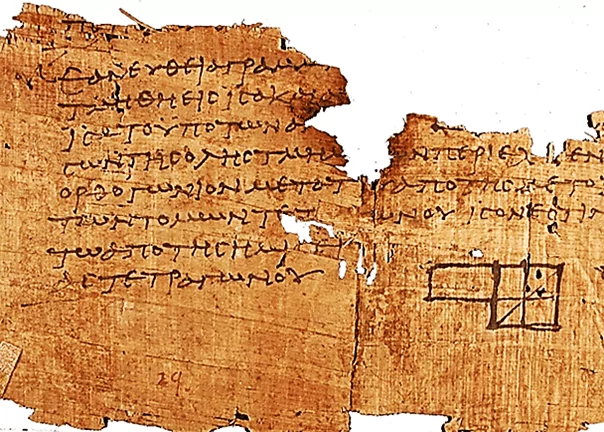 ΕΑΝ ΕΥΘΕΙΑ ΓΡΑΜΜ
ΤΜΗΘΗ ΕΙϹ ΙϹΑ Κ
ΙϹΑ ΤΟ ΥΠΟ ΤΩΝ ΑΝ
ϹΩΝ ΤΗϹ ΟΛΗϹ ΤΜΗΜ Ν ΠΕΡΙΕΧ ΕΝ
ΟΡΘΟΓΩΝΙΟΝ ΜΕΤΑ ΤΟΥ ΑΠΟ ΤΗϹ ΜΕΤΟΞ
ΤΩΝ ΤΟΜΩΝ ΤΕΤ ΩΝΟΥ ΙϹΟΝ ΕϹΤΙΝ
ΤΩ ΑΠΟ ΤΗϹ ΗΜΙϹΕΙ
ΤΕΤΡΑΓΩΝΟΥ
29.